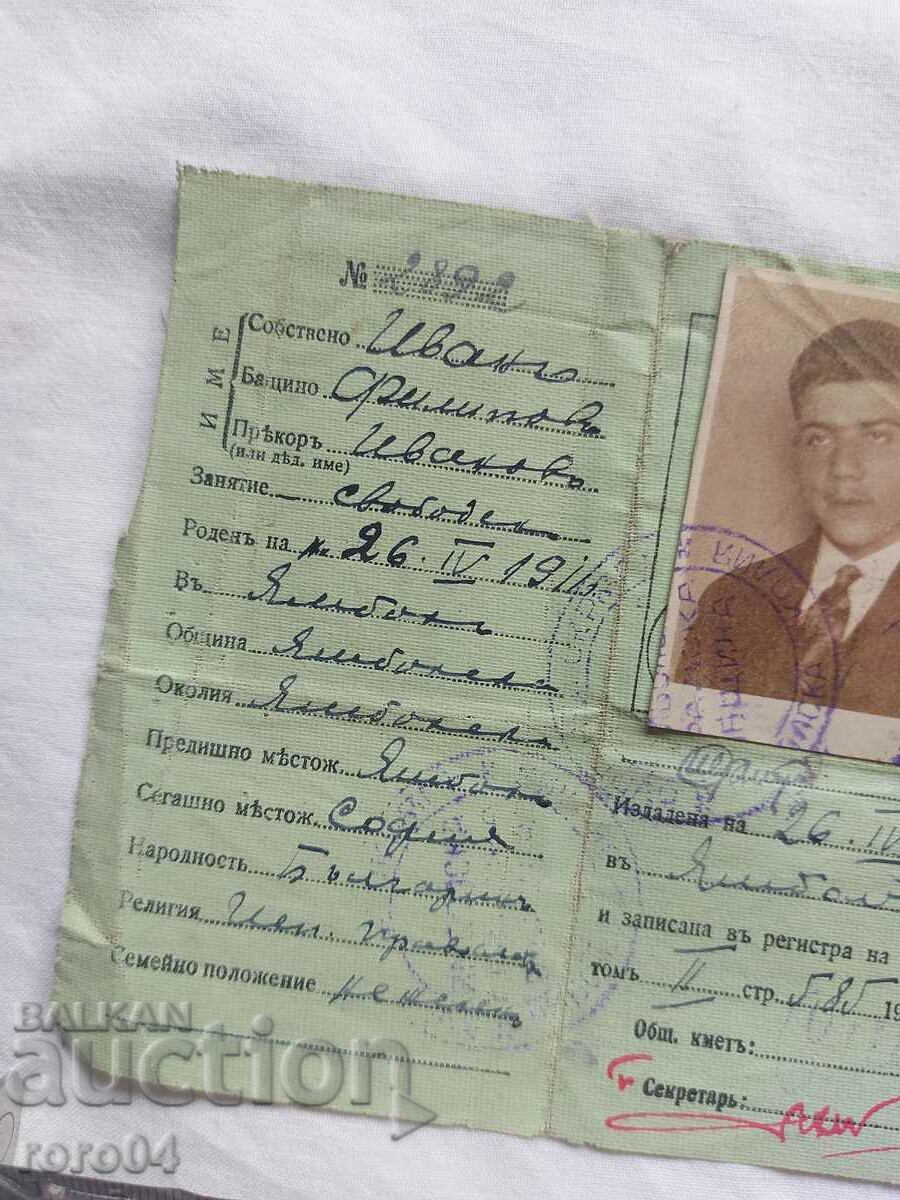 №
ИМЕ
Собствено Иванъ
Бащино Филиповъ
Прѣкоръ Ивановъ
(или дѣд. име)
Занятие свободен
Роденъ на 26. IV 19
Въ Ямболъ
Община Ямболска
Околия Ямболска
Предишно мѣстож. Ямболъ
Сегашно мѣстож. София
Народность Българинъ
Религия Изт. правосл.
Семейно положение нежененъ
Издадена на 26. IV
въ Ямболъ
и записана въ регистра на
томъ II стр. 585 19
Общ. кметъ:
Секретарь:
BALKAN
auction
roro04